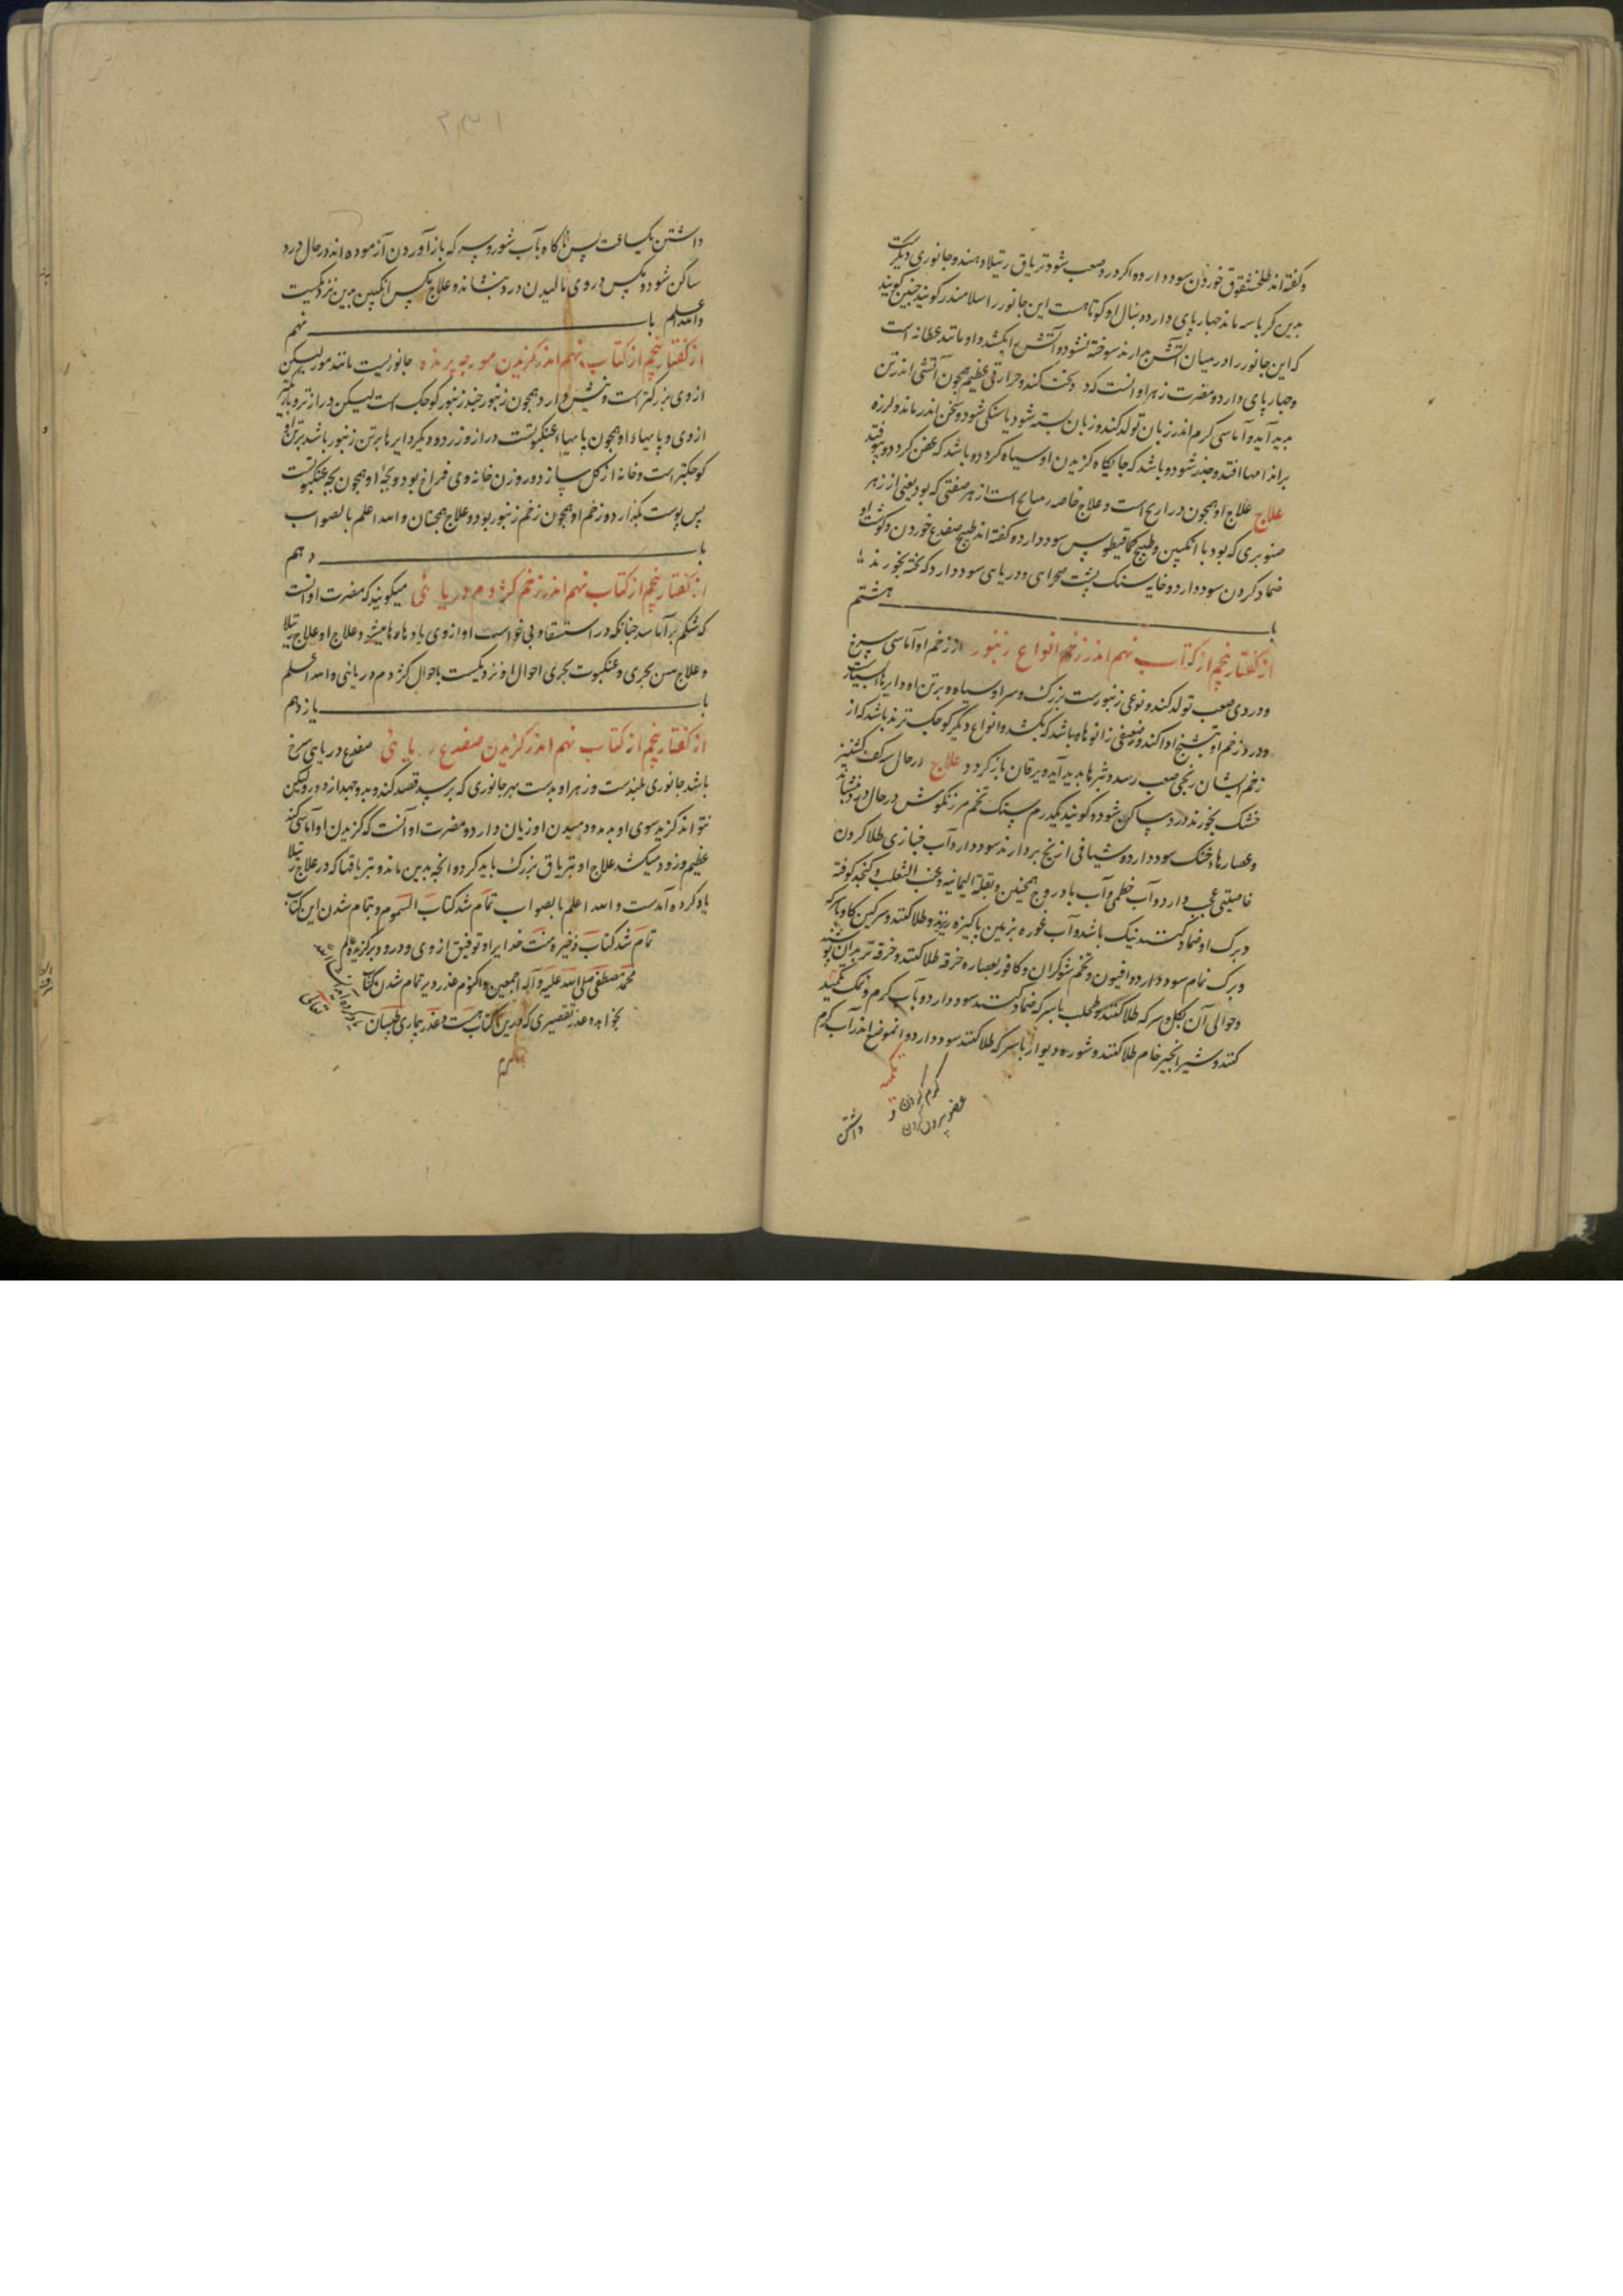 وکفته اند طلخشقوق خوردن سود دارد و اکر درد صعب شود تریاق رتیلا دهند و جانوری دیکرست
بدین کرباسه ماند جهار پای دارد و دنبال او کوتاهست این جانور را سلامندر کویند جنین کویند
که این جانور را در میان آتش بدارند سوخته نشود و آتش را بکشد و او مانند عظایه است
وجهار پای دارد و مضرت زهر او انست که درد سخت کند و حرارتی عظیم همچون آتشی اندر تن
بدید آید و آماسی کرم اندر زبان تولد کند و زبان بسته شود یا سنکی شود و سخن اندر ماند و لرزه
براندامها افتد و خدر شود و باشد که جایکاه کزیدن او سیاه کردد و باشد که عفن کردد و بیوفتد
علاج علاج او همچون ذراریح است و علاج خاصه رساج است از هر صفتی که بود یعنی از زهر
صنوبری که بود با انکبین و طبیخ کمافیطوس سود دارد و کفته اند طبیخ ضفدع خوردن و کوشت او
ضماد کردن سود دارد و خایه سنک پشت صحرای و دریای سود دارد که پخته بخورند
باب هشتم
از کفتار پنجم از کتاب نهم اندر زخم انواع زنبور از زخم او آماسی سرخ
و دردی صعب تولد کند و نوعی زنبورست بزرک و سر او سیاه و بر تن او دایرها بسیارست
و درد زخم او بتشنج ادا کند و ضعیفی زانوها و باشد که بکشد و انواع دیکر کوچک ترند باشد که از
زخم ایشان رنجی صعب رسد و بثرها بدید آید و یرقان باز کردد علاج در حال سه کف کشنیز
خشک بخورند درد ساکن شود و کویند یکدرم سنک تخم مرزنکوش در حال درد بنشاند
و عصارهاء خشک سود دارد و شیافی از یخ بردارند سود دارد آب خبازی طلا کردن
خاصیتی عجب دارد و آب خطمی و آب بادروج همچنین و بقلة الیمانیه و عنب الثعلب و کنجد کوفته
و برک او ضماد کنند نیک باشد و آب غوره بزمین پاکیزه ریزند و طلا کنند و سرکین کاو با سرکه
و برک نمام سود دارد و افیون و تخم شوکران و کافور بعصاره خرفه طلا کنند و خرقه تر بدان پوشند
و حوالی آن بکل و سرکه طلا کنند و طحلب با سرکه ضماد کنند سود دارد و بآب کرم و نمک تکمید
کنند و شیر انجیر خام طلا کنند و شوره دیوار با سرکه طلا کنند سود دارد و انموضع اندر آب کرم
کرم کردن و
عضو بیرون کردن
داشتن
داشتن یکساعت پس ناکاه بآب شور و سرکه باز آوردن آزموده اند در حال درد
ساکن شود و مکس در وی مالیدن درد بنشاند و علاج مکس انکبین بدین نزدیکست
والله اعلم باب نهم
از کفتار پنجم از کتاب نهم اندر کزیدن مورچه پرنده جانوریست مانند مور لیکن
از وی بزرکتر است و نیش دارد همچون زنبور چند زنبور کوچک است لیکن دراز تر و باریکتر
از وی و پایهاء او همچون پایهاء عنکبوتست دراز و زرد و دیکر دایرها بر تن زنبور باشد بر تن او
کوچکتر است و خانه از کل سازد و روزن خانه وی فراخ بود و بچهٔ او همچون بچه عنکبوتست
پس پوست بکذارد و زخم او همچون زخم زنبور بود و علاج همچنان والله اعلم بالصواب
باب دهم
از کفتار پنجم از کتاب نهم اندر زخم کژدم دریا ئی میکویند که مضرت او انست
که شکم بر آماسد چنانکه در استسقا و بی خواست او از وی بادها رها میشود و علاج او علاج رتیلا
و علاج حسن بحری و عنکبوت بحری احوال او نزدیکست باحوال کژدم دریائی والله اعلم
باب یازدهم
از کفتار پنجم از کتاب نهم اندر کزیدن ضفدع دریا ئی ضفدع دریایی سرخ
باشد جانوری پلیدست و زهر او بدست بهر جانوری که برسد قصد کند و بدو جهد از دور و لیکن
نتواند کزید سوی او بدمد و دمیدن او زیان دارد و مضرت او آنست که کزیدن او آماسی کند
عظیم و زود میکشد علاج او بتریاق بزرک باید کرد و انچه بدین ماند و بتریاقها که در علاج رتیلا
یاد کرده آمدست والله اعلم بالصواب تمام شد کتاب السموم و بتمام شدن این کتاب
تمام شد کتاب ذخیره و منت خدایرا و توفیق از وی و درود بر کزیده او
محمد مصطفی صلی الله علیه و آله اجمعین و اکنونم عذر دیر تمام شدن کتاب
بخواهد و عذر تقصیری که درین کتاب هست و عذر بیماری طبیبان